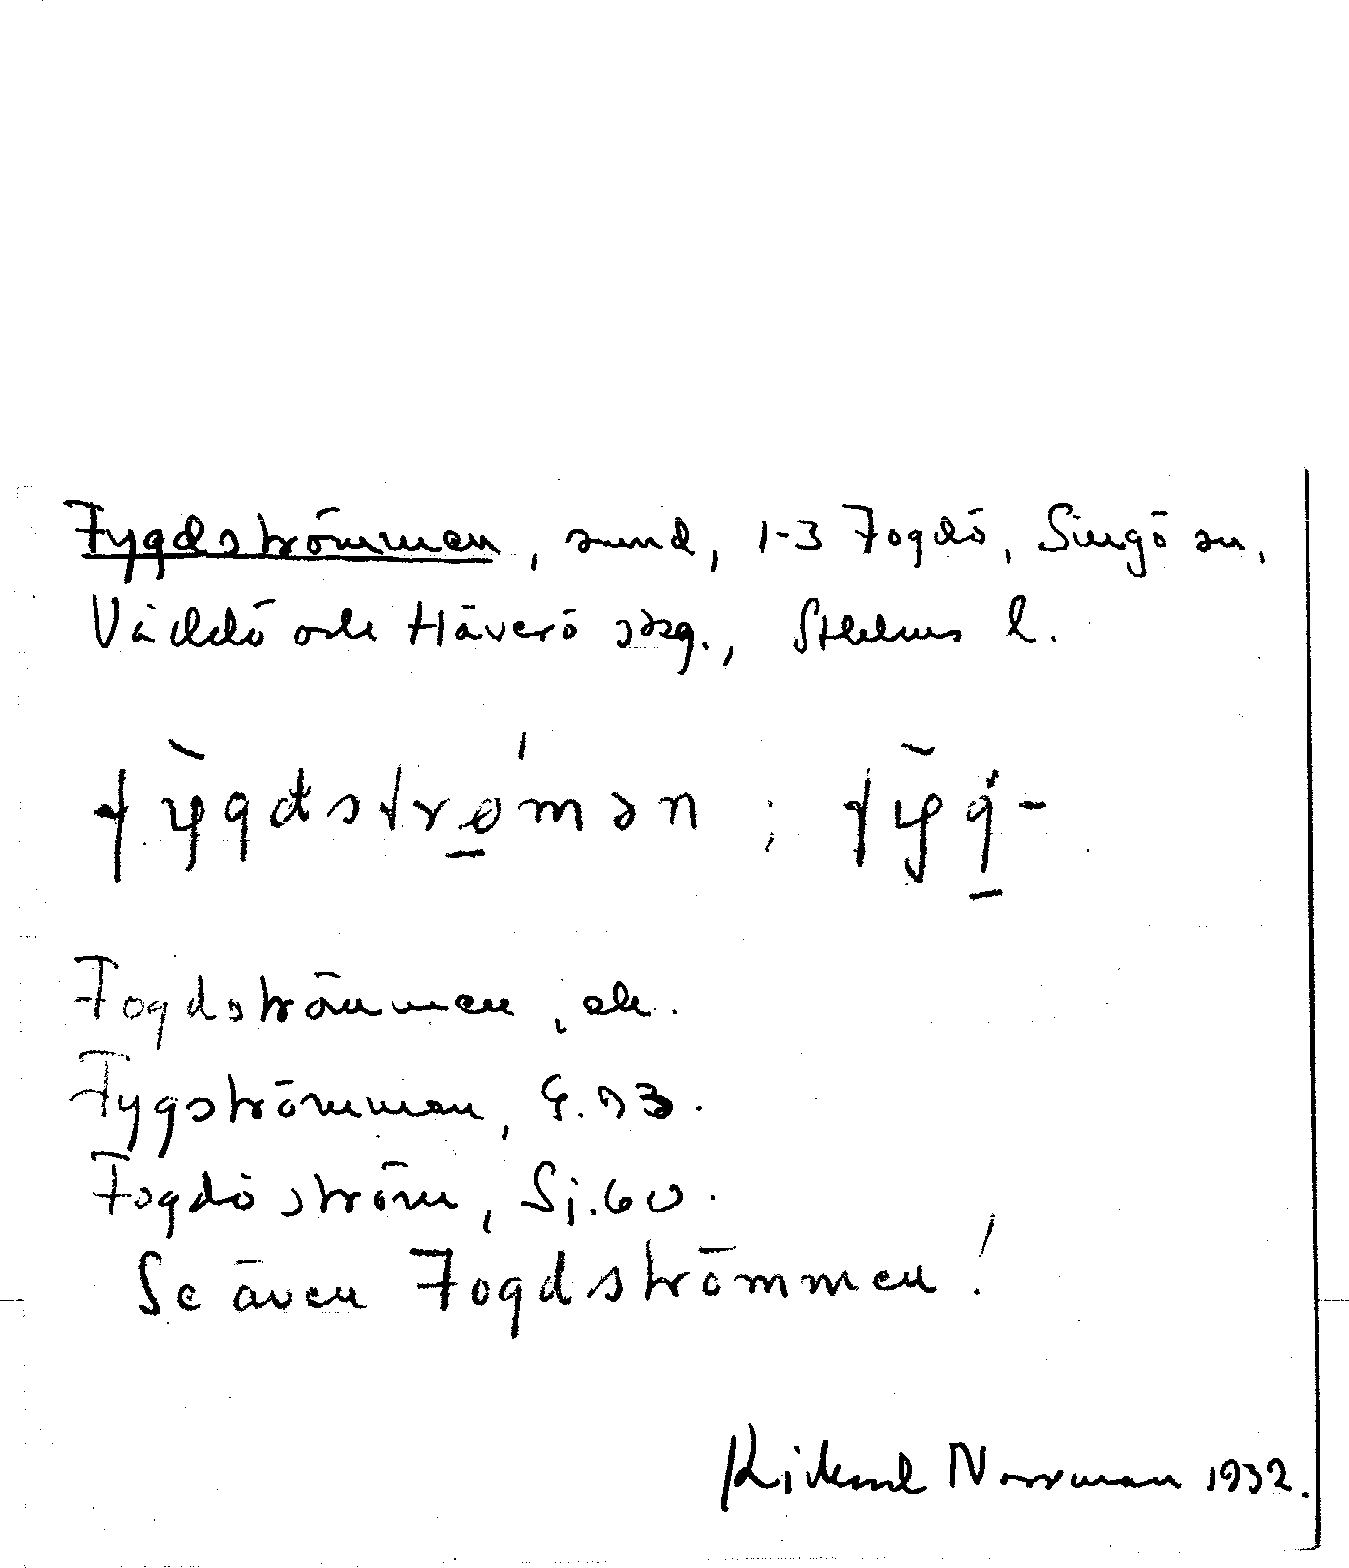 Fygdströmmen, sund, 1-3 Fogdö, Singö sn,
Väddö och Häverö skg., Sthlms l.
fỳgdstrømən ; fyg-
Fogdströmmen, ek.
Fygströmmen, G.
Fogdö ström, Sj. 60.
Se även Fogdströmmen!
Rickard Norrman 1932.